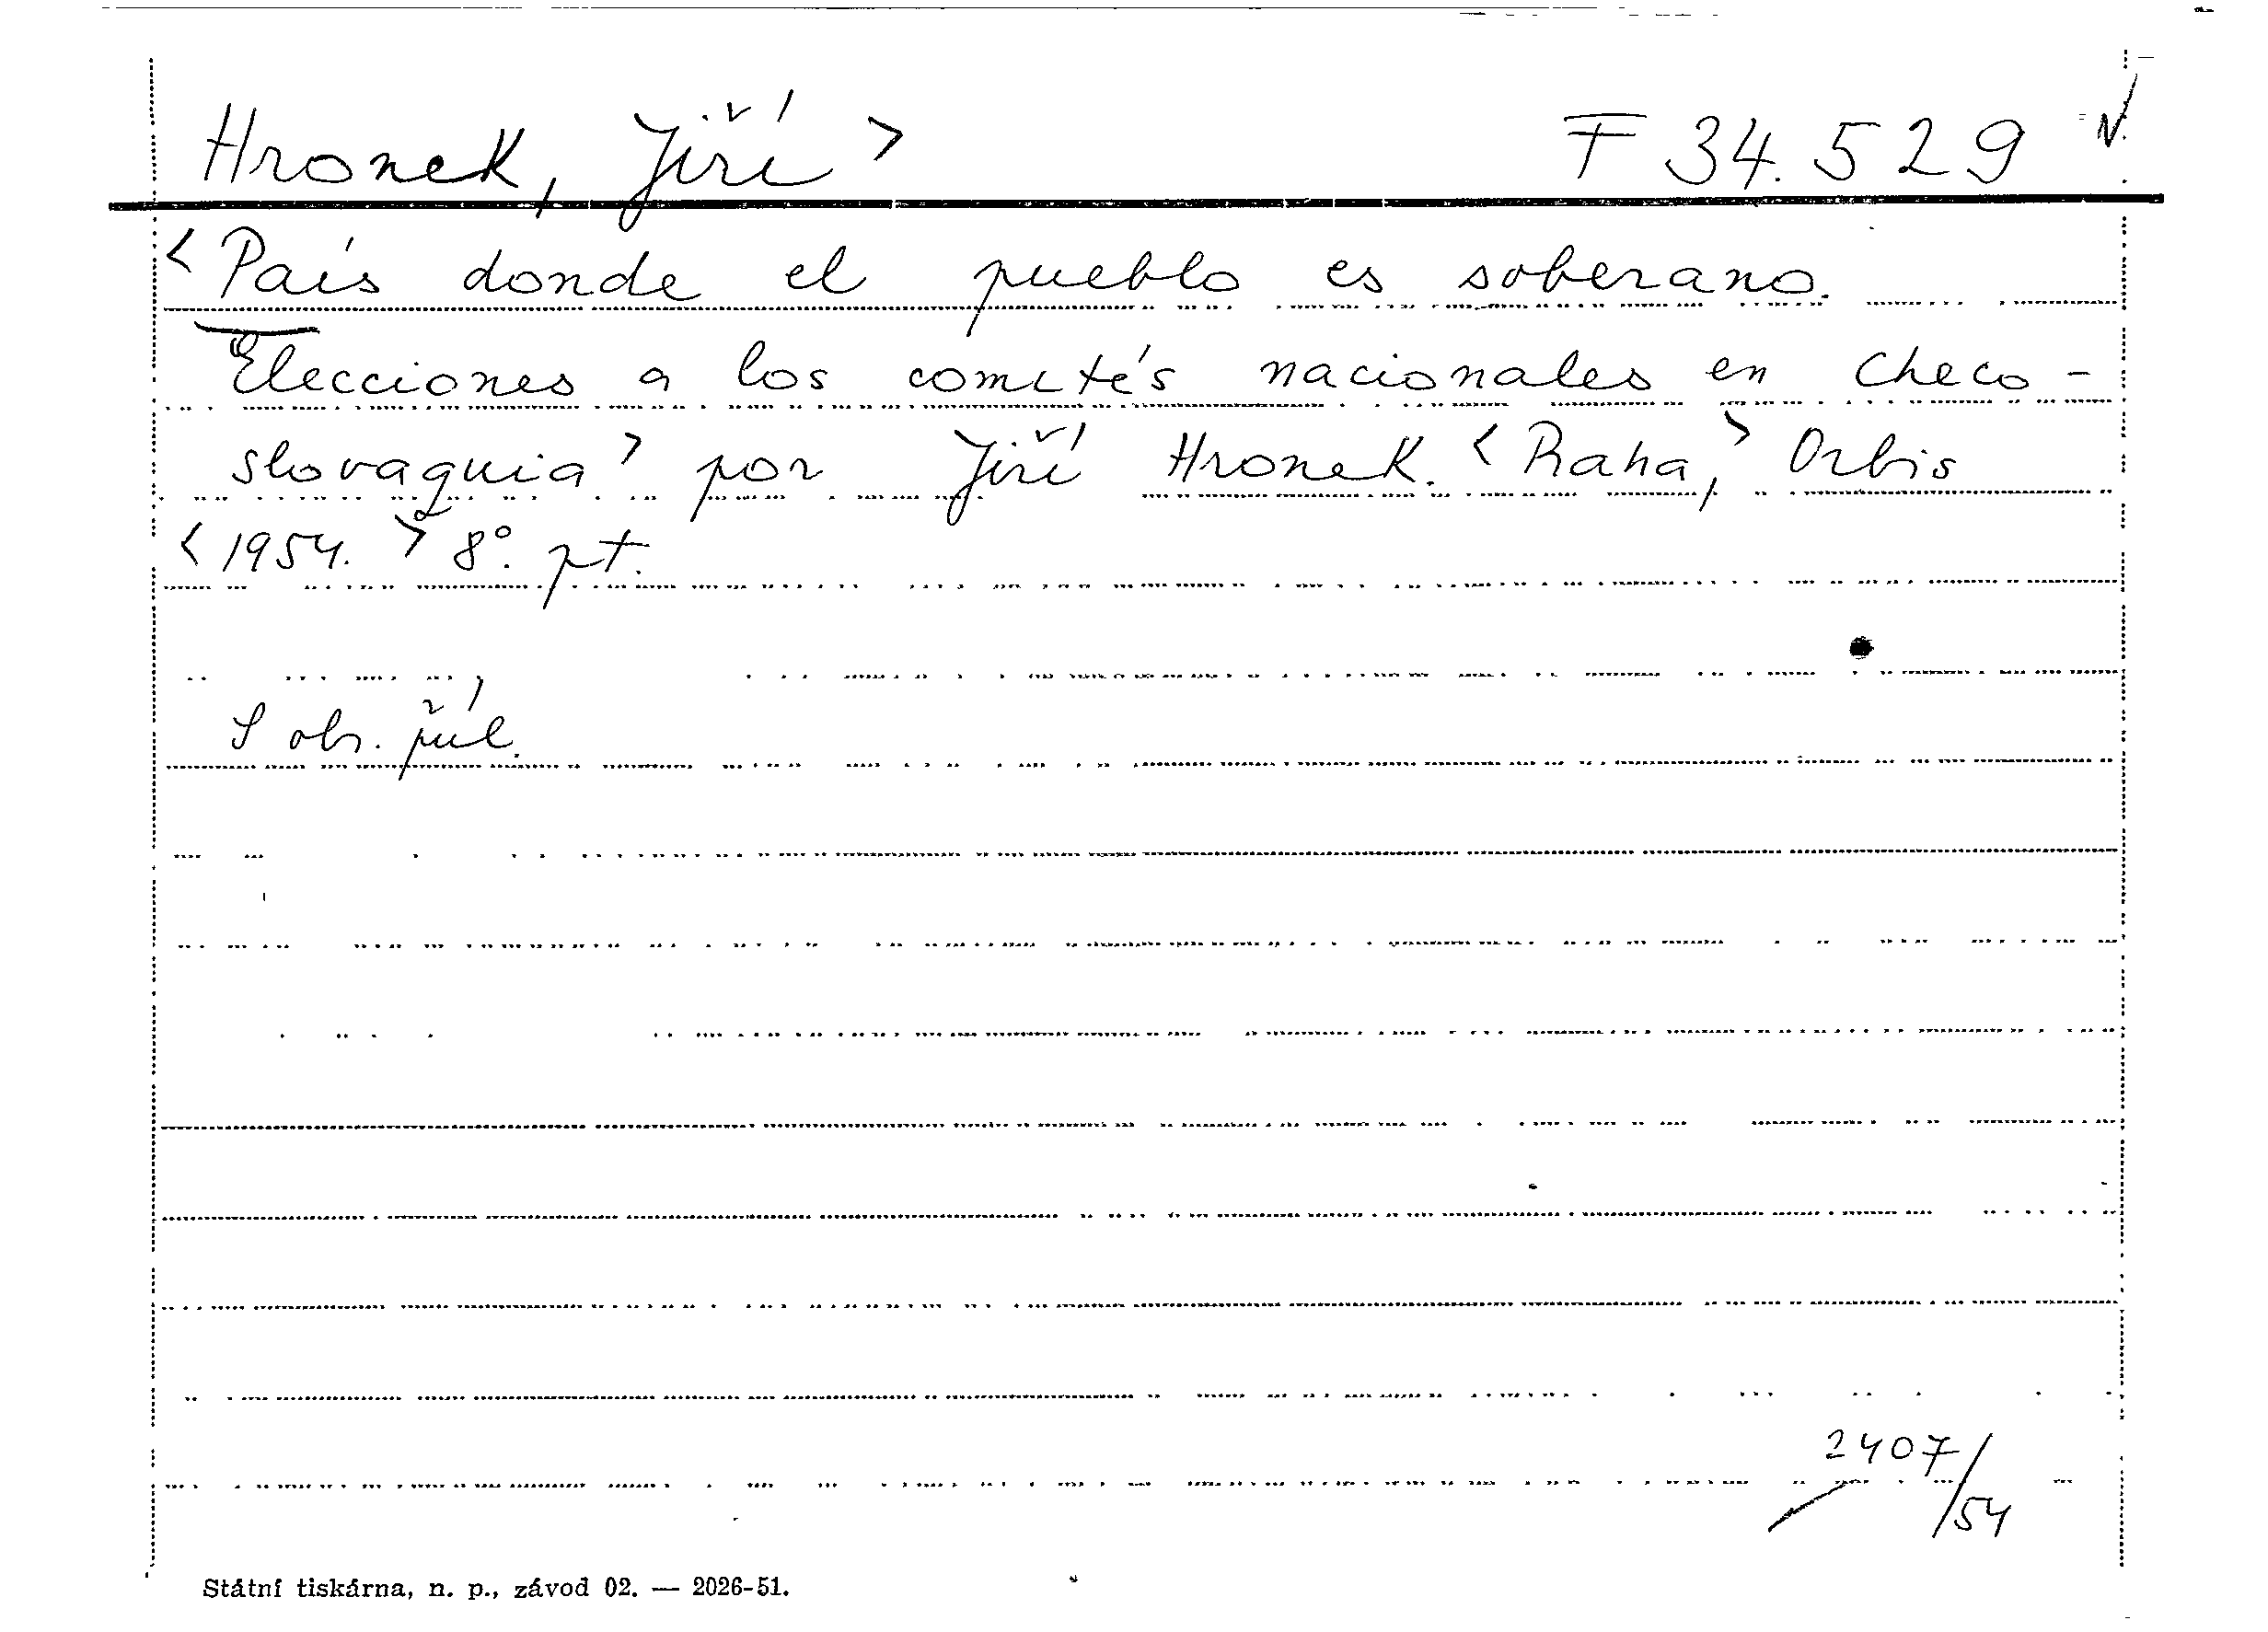 Hronek, Jiří > F 34.529 N.
< País donde el pueblo es soberano.
Elecciones a los comités nacionales en Checo-
slovaquia > por Jiří Hronek. < Praha, > Orbis
< 1954. > 8°. pt.
S obr. příl.
2407/
/54
Státní tiskárna, n. p., závod 02. — 2026-51.